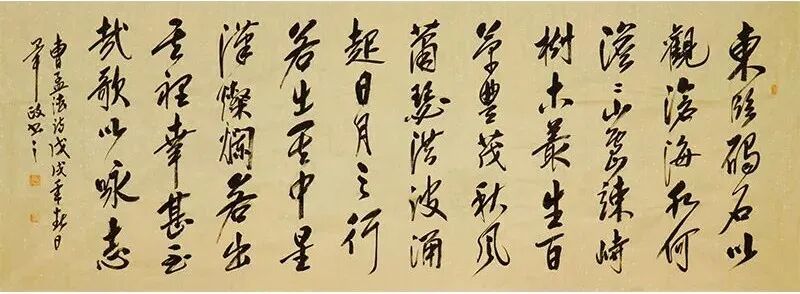 東臨碣石以
觀滄海水何
澹々山島竦峙
樹木叢生百
草豐茂秋風
蕭瑟洪波涌
起日月之行
若出其中星
漢燦爛若出
其裡幸甚至
哉歌以詠志
曹孟德詩戊戌年春日
政书之